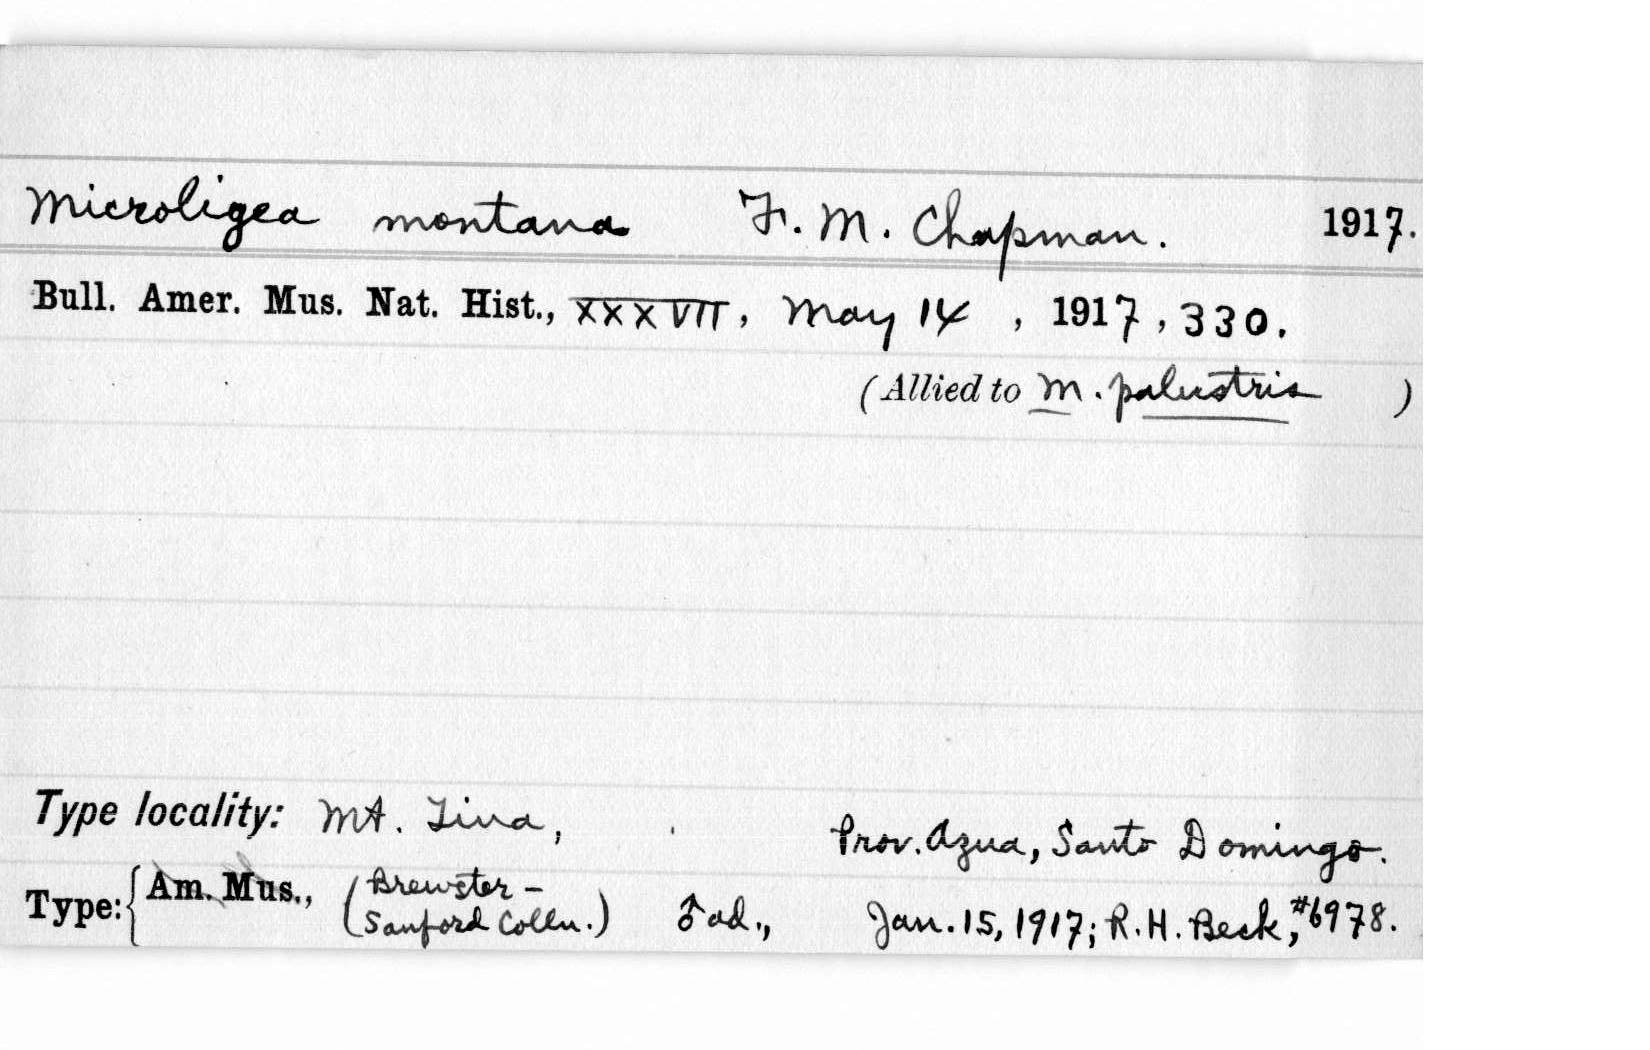 Microligea montana F. M. Chapman. 1917.
Bull. Amer. Mus. Nat. Hist., XXXVII, May 14, 1917, 330.
(Allied to M. palustris )
Type locality: Mt. Tina, Prov. Azua, Santo Domingo.
Type: { Am. Mus., (Brewster-
Sanford Colln.) ♂ ad., Jan. 15, 1917; R. H. Beck, #6978.